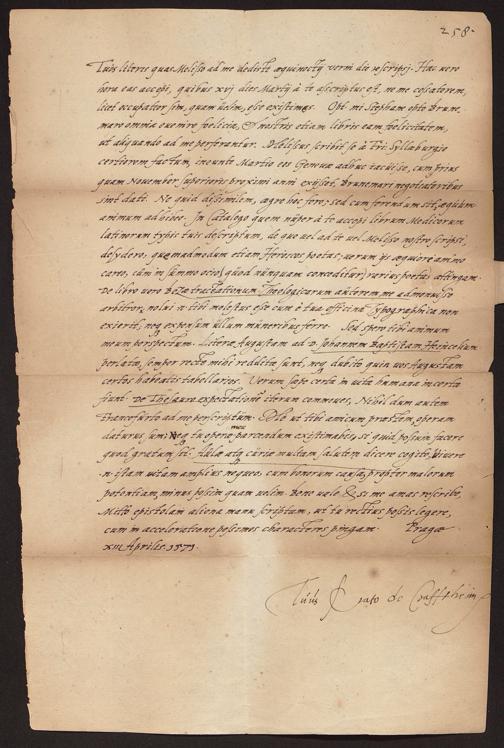 258.
Tuis literis quas Melisso ad me dedisti æquinoctij verni die rescripsi. Hac vero
hora eas accepi, quibus xvj dies Martij à te ascriptus est, ne me cessatorem,
licet occupatior sim, quam velim, esse existimes. Opt. mi Stephane opto Brune-
maro omnia evenire foelicia, & nostris etiam libris eam foelicitatem,
ut aliquando ad me perferantur. Melissus scribit se à Fri. Syllburgio
certiorem factum, ineunte Martio eos Genevæ adhuc iacuisse, cum prius
quam November superioris proximi anni exijsset, Brunemari negotiatoribus
sint dati. Ne quid dissimulem, ægre hoc fero; sed cum ferendum sit, æquum
animum adhibeo. In Catalogo quem nuper à te accepi librum Medicorum
latinorum typis tuis descriptum, de quo vel ad te vel Melisso nostro scripsi,
desydero, quemadmodum etiam Heroicos poetas; verum ijs æquiore animo
careo, cum in summo ocio (quod nunquam conceditur) rarius poetas attingam.
De libro vero Bezæ tractationum Theologicarum autorem me admonuisse
arbitror, nolui n. tibi molestus esse cum è tua officina Typographica non
exierit, neq. exensum ullum muneribus ferre. Sed spero tibi animum
meum perspectum. Literæ Augustam ad D. Johannem Baptistam Heincelium
perlatæ, semper recte mihi redditæ sunt, neq. dubito quin vos Augustam
certos habeatis tabellarios. Verum sæpe certa in vita humana incerta
fiunt. De Thesauro expectationem iterum commoves, Nihil dum autem
Francofurto ad me perscriptum. Volo ut tibi amicum præstem, operam
daturus sum; Neq. tu operæ meæ parcendum existimabis, si quid possim facere
quod gratum sit. Vale atq. charis multam salutem dicere cogito. Vivere
n. istam vitam amplius nequeo, cum bonorum causa, propter malorum
potentiam, minus possim quam velim. Bene vale & si me amas rescribe.
Mitto epistolam aliena manu scriptam, ut tu rectius possis legere,
cum in acceleratione pessimos characteres pingam. Pragæ
xiii Aprilis. 1571.
Tuus Crato de Crafftheim